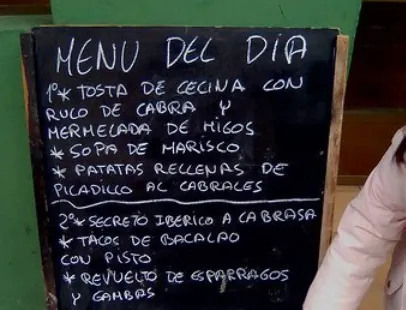 MENU DEL DIA
1º* TOSTA DE CECINA CON
RULO DE CABRA Y
MERMELADA DE HIGOS
* SOPA DE MARISCO
* PATATAS RELLENAS DE
PICADILLO AL CABRALES
2º* SECRETO IBERICO A LA BRASA
* TACOS DE BACALAO
CON PISTO
* REVUELTO DE ESPARRAGOS
Y GAMBAS